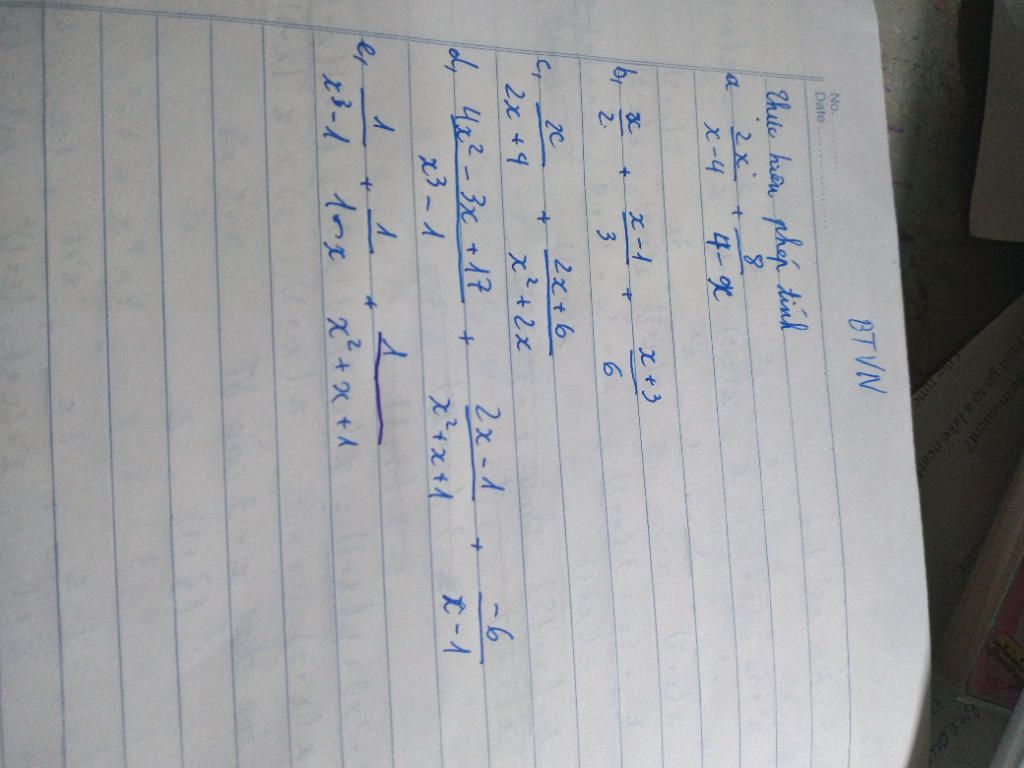 BTVN
No.
Date
Thực hiện phép tính
a, 2x/(x-4) + 8/(4-x)
b, x/2 + (x-1)/3 + (x+3)/6
c, x/(2x+4) + (2x+6)/(x²+2x)
d, (4x²-3x+17)/(x³-1) + (2x-1)/(x²+x+1) + -6/(x-1)
e, 1/(x³-1) + 1/(1-x) + 1/(x²+x+1)